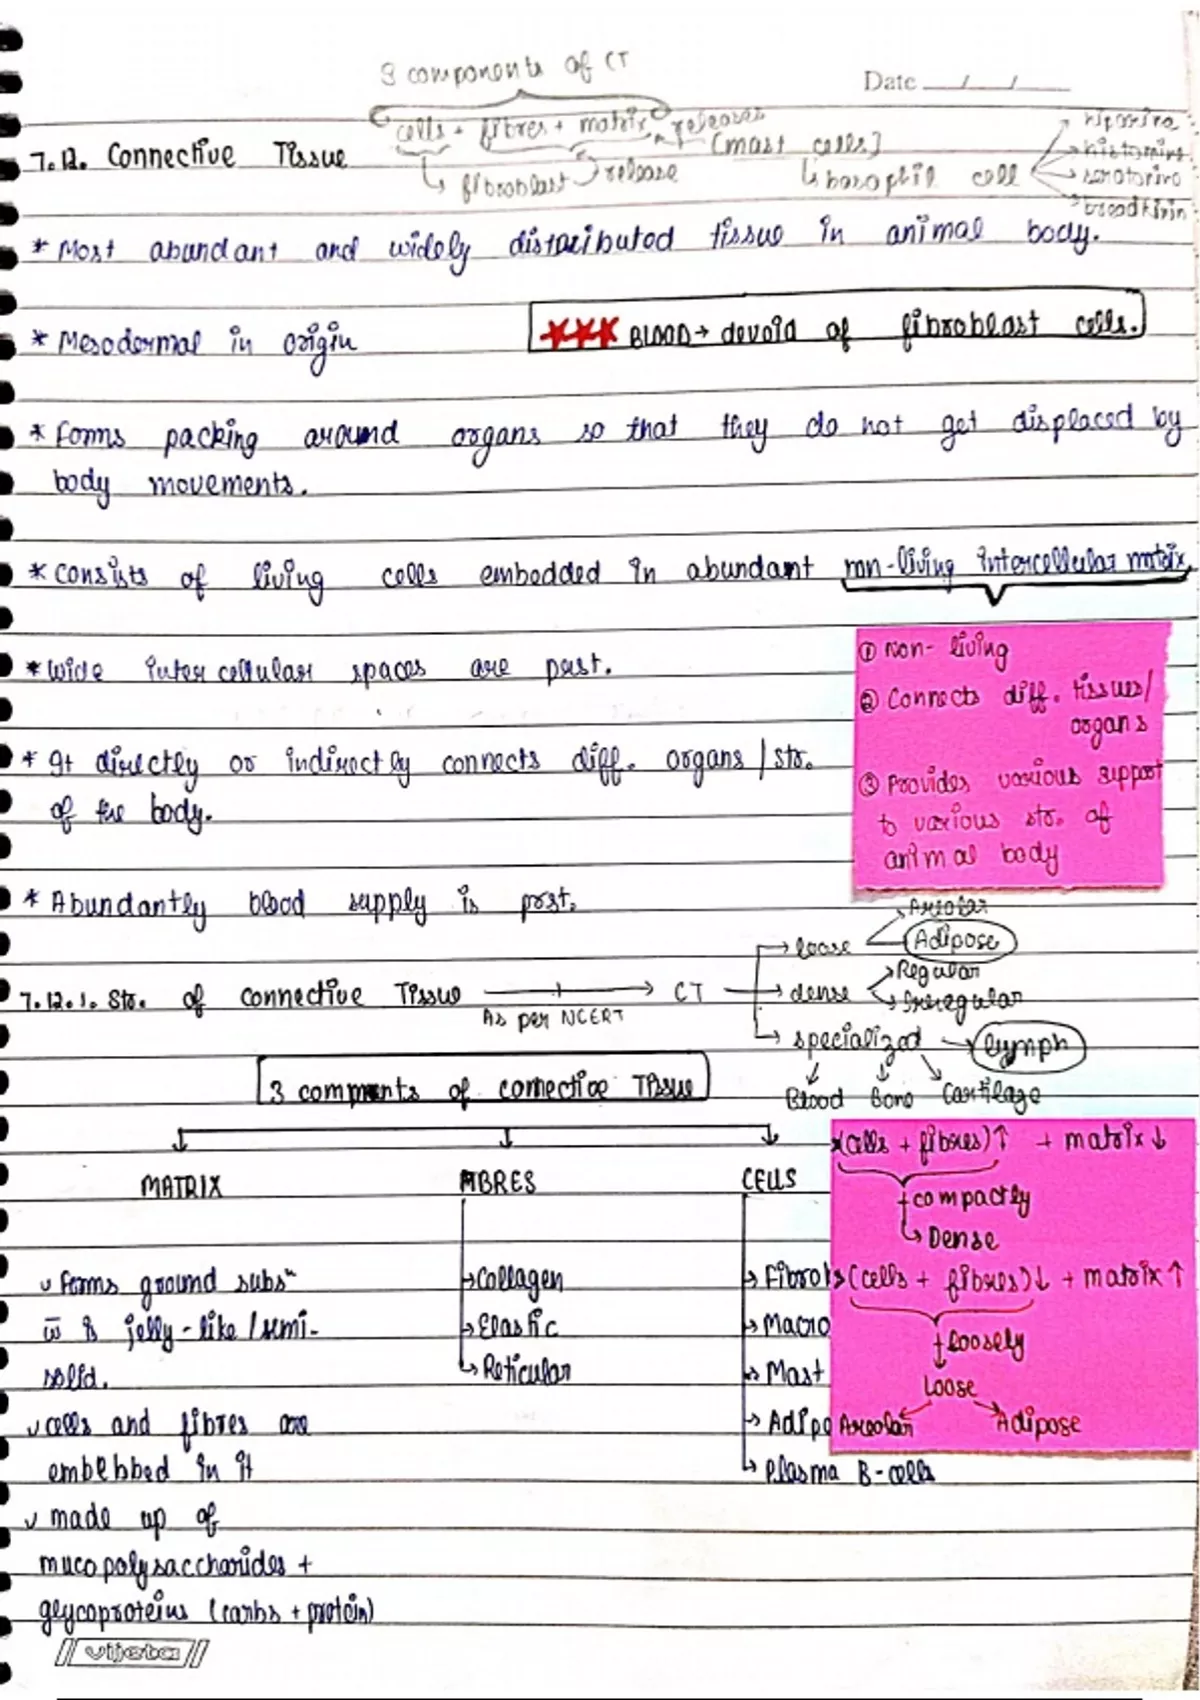 3 components of CT
Date __/__/__
cells + fibres + matrix releases
[mast cells]
fibroblast release
basophil cell
heparine
histamine
7.12. Connective Tissue
* Most abundant and widely distributed tissue in animal body.
* Mesodermal in origin
*** BLOOD → devoid of fibroblast cells.
* Forms packing around organs so that they do not get displaced by
body movements.
* Consists of living cells embedded in abundant non-living intercellular matrix
* Wide inter cellular spaces are prst.
① non-living
② Connects diff. tissues/
organs
③ Provides various support
to various str. of
animal body
* It directly or indirectly connects diff. organs / str.
of the body.
* Abundantly blood supply is prst.
7.12.1. Str. of connective Tissue → CT
As per NCERT
→ loose
Areolar
Adipose
→ dense
→ Regular
→ Irregular
→ specialized → lymph
Blood Bone Cartilage
3 compnents of connective Tissue
MATRIX
FIBRES
CELLS
*(cells + fibres)↑ + matrix ↓
compactly
Dense
(cells + fibres)↓ + matrix ↑
loosely
Loose
Areolar
Adipose
✓ Forms ground subsⁿ
w̄ is jelly-like / semi-
solid.
✓ cells and fibres are
embebbed in it
✓ made up of
mucopolysaccharides +
glycoproteins (carbs + protein)
→ Collagen
→ Elastic
→ Reticular
→ Fibrob
→ Macro
→ Mast
→ Adipo
→ Plasma B-cells
// vijeta //